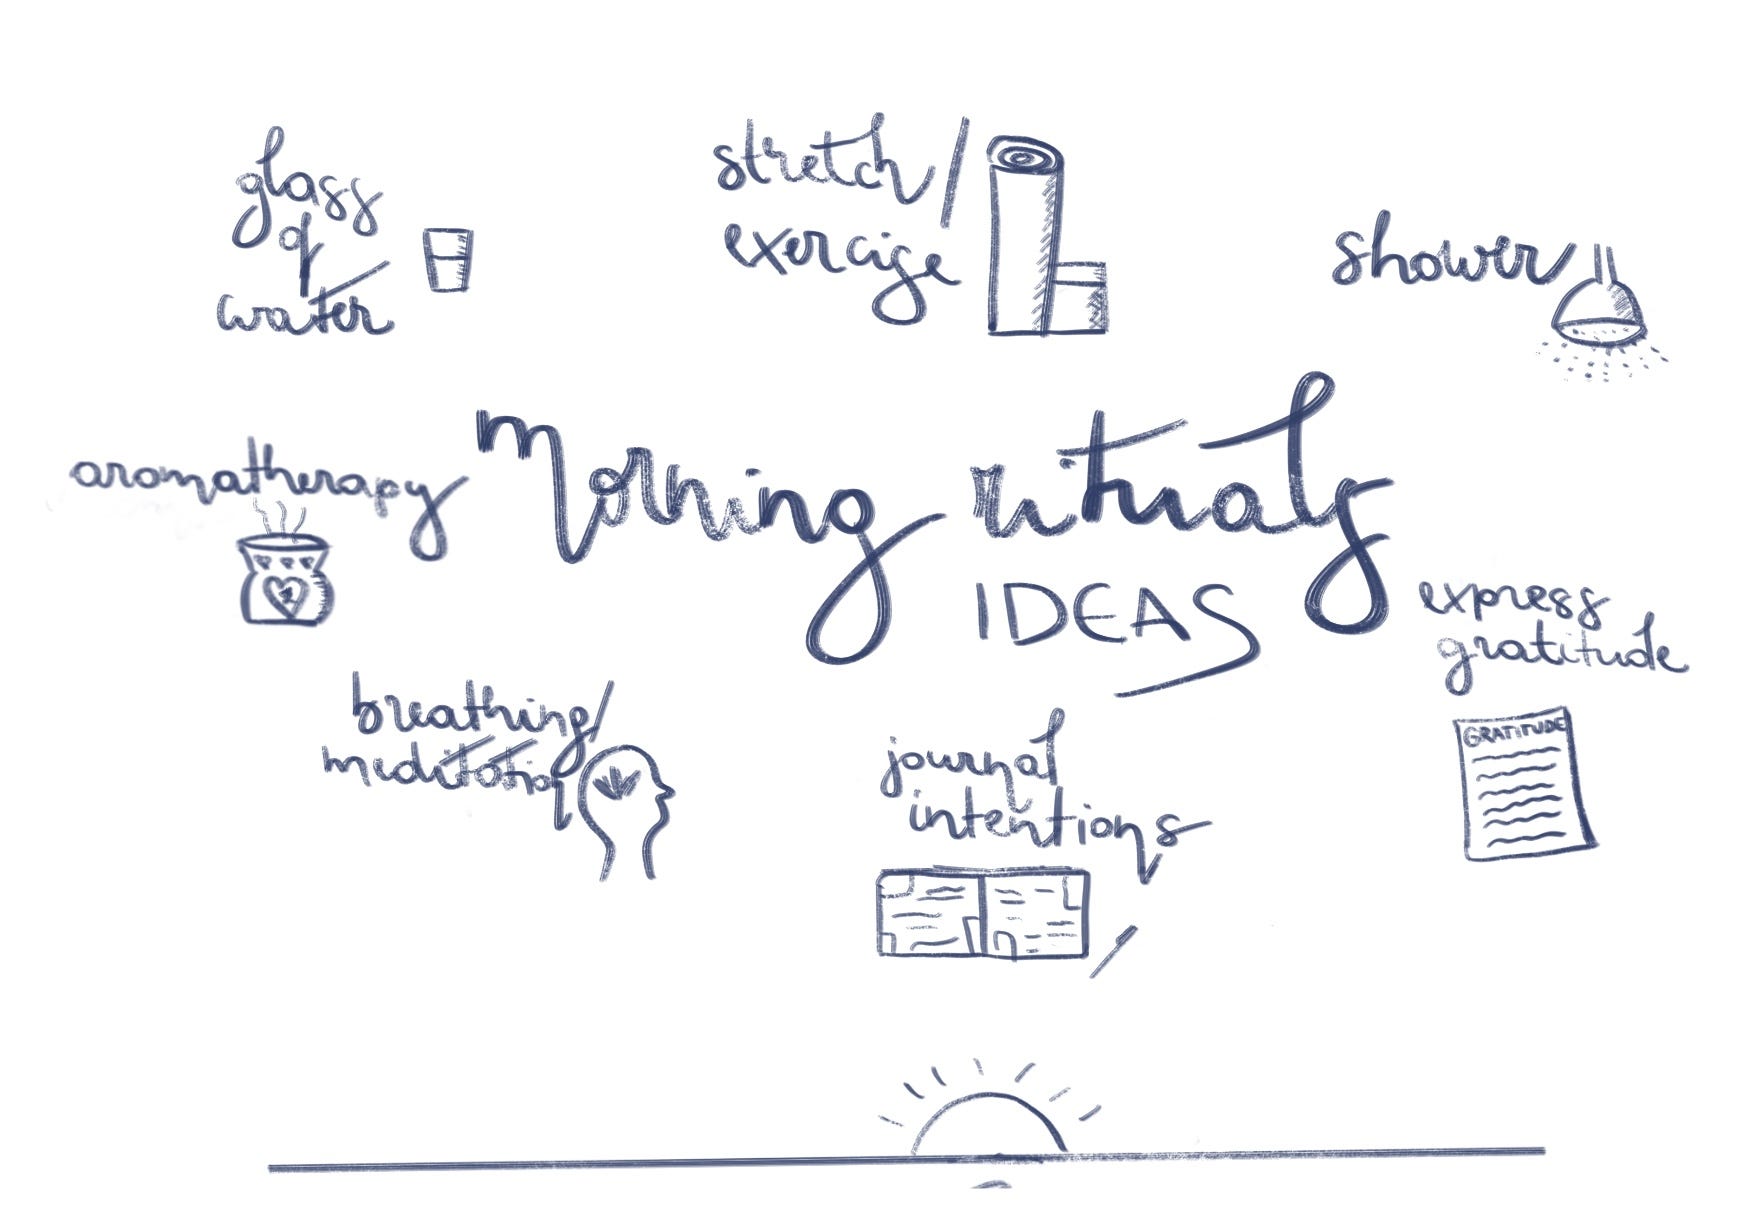 glass
of
water
stretch/
exercise
shower
aromatherapy
Morning rituals
IDEAS
express
gratitude
GRATITUDE
breathing/
meditation
journal
intentions